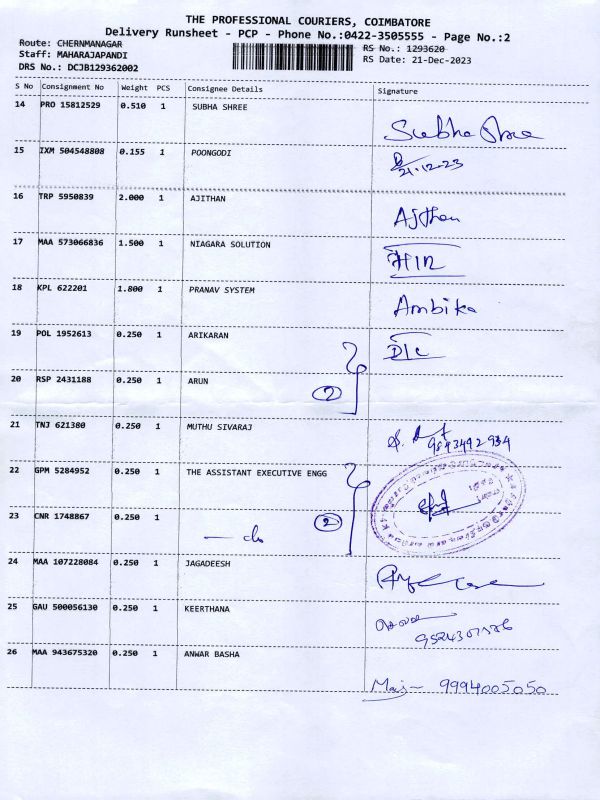 THE PROFESSIONAL COURIERS, COIMBATORE
Delivery Runsheet - PCP - Phone No.:0422-3505555 - Page No.:2
Route: CHERNMANAGAR
Staff: MAHARAJAPANDI
DRS No.: DCJB129362002
RS No.: 1293620
RS Date: 21-Dec-2023
S No Consignment No Weight PCS Consignee Details Signature
14 PRO 15812529 0.510 1 SUBHA SHREE Subha Shree
15 IXM 504548808 0.155 1 POONGODI 21.12.23
16 TRP 5950839 2.000 1 AJITHAN Ajithan
17 MAA 573066836 1.500 1 NIAGARA SOLUTION
18 KPL 622201 1.800 1 PRANAV SYSTEM Ambika
19 POL 1952613 0.250 1 ARIKARAN D/C
20 RSP 2431188 0.250 1 ARUN 2
21 TNJ 621380 0.250 1 MUTHU SIVARAJ
22 GPM 5284952 0.250 1 THE ASSISTANT EXECUTIVE ENGG
23 CNR 1748867 0.250 1 — do 2
24 MAA 107228084 0.250 1 JAGADEESH
25 GAU 500056130 0.250 1 KEERTHANA
26 MAA 943675320 0.250 1 ANWAR BASHA 9994005050